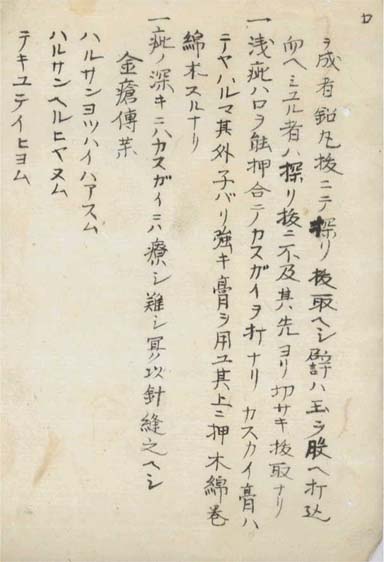 ヲ成者鉛丸抜ニテ探リ抜取ヘシ譬ハ玉ヲ股ヘ打込
向ヘミユル者ハ探リ抜ニ不及其先ヨリ切サキ抜取ナリ
一浅疵ハロヲ能押合ニテカスガイヲ打ナリカスカイ膏ハ
テヤハルマ其外子バリ強キ膏ヲ用ユ其上ニ押木綿巻
綿木スルナリ
一疵ノ深キニハカスガイニハ療シ難シ冝ク以針縫之ヘシ
金瘡傳薬
ハルサンヨツハイハアスム
ハルサンヘルヒヤヌム
テキユテイヒヨム